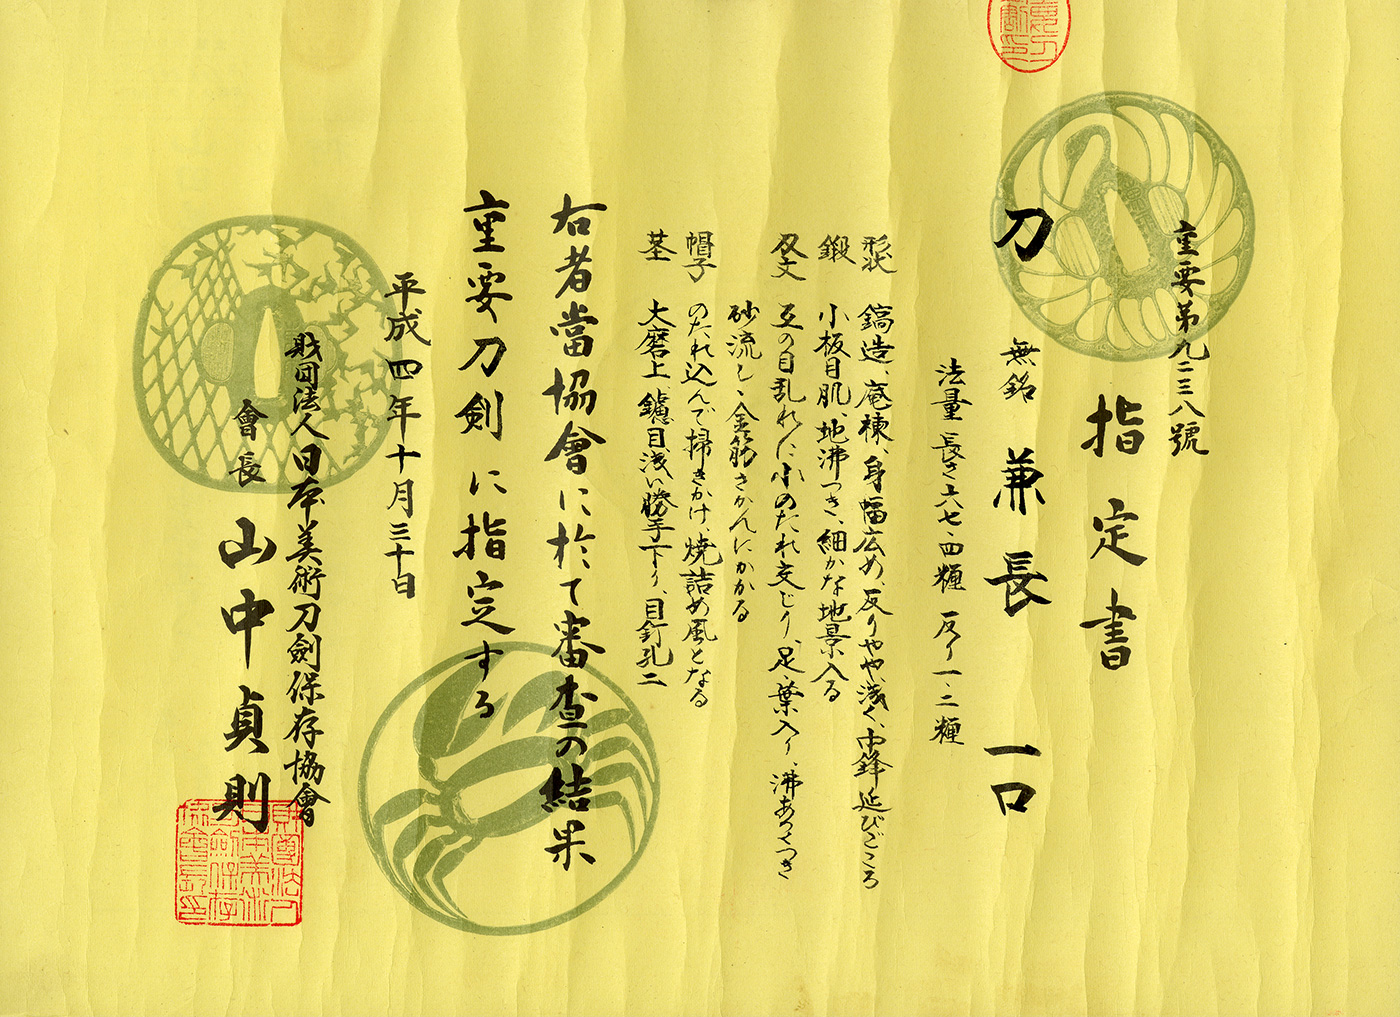 重要第九二三八號
指定書
刀 無銘 兼長 一口
法量 長さ六七・四糎 反り一・二糎
形状 鎬造、庵棟、身幅広め、反りやや浅く、中鋒延びごころ
鍛 小板目肌、地沸つき、細かな地景入る
刃文 互の目乱れに小のたれ交じり、足・葉入り、沸あつくつき
砂流し、金筋さかんにかかる
帽子 のたれ込んで掃きかけ、焼詰め風となる
茎 大磨上、鑢目浅い勝手下り、目釘孔二
右者當協會に於て審査の結果
重要刀剣に指定する
平成四年十月三十日
財団法人日本美術刀劍保存協會
會長 山中貞則
財團法人
日本美術
刀劍保存
協會會長印